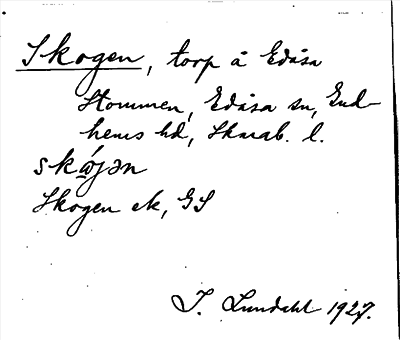 Skogen, torp å Edåsa
Stommen, Edåsa sn, Gud-
hems hd, Skarab. l.
skώ̨jən
Skogen ek, GS
I. Lundahl 1927.